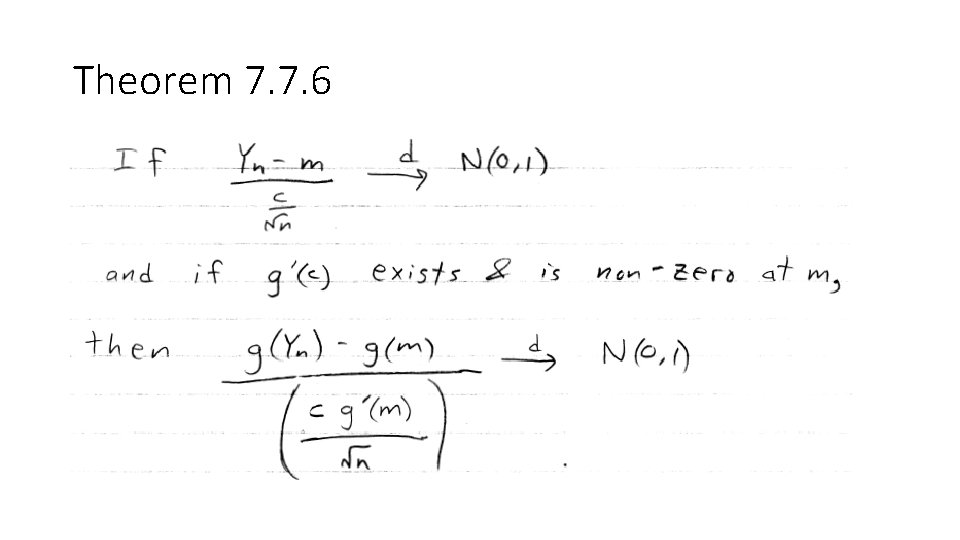 Theorem 7.7.6
If (Yn - m) / (c/√n) →d N(0,1)
and if g'(c) exists & is non-zero at m,
then (g(Yn) - g(m)) / (c g'(m) / √n) →d N(0,1).